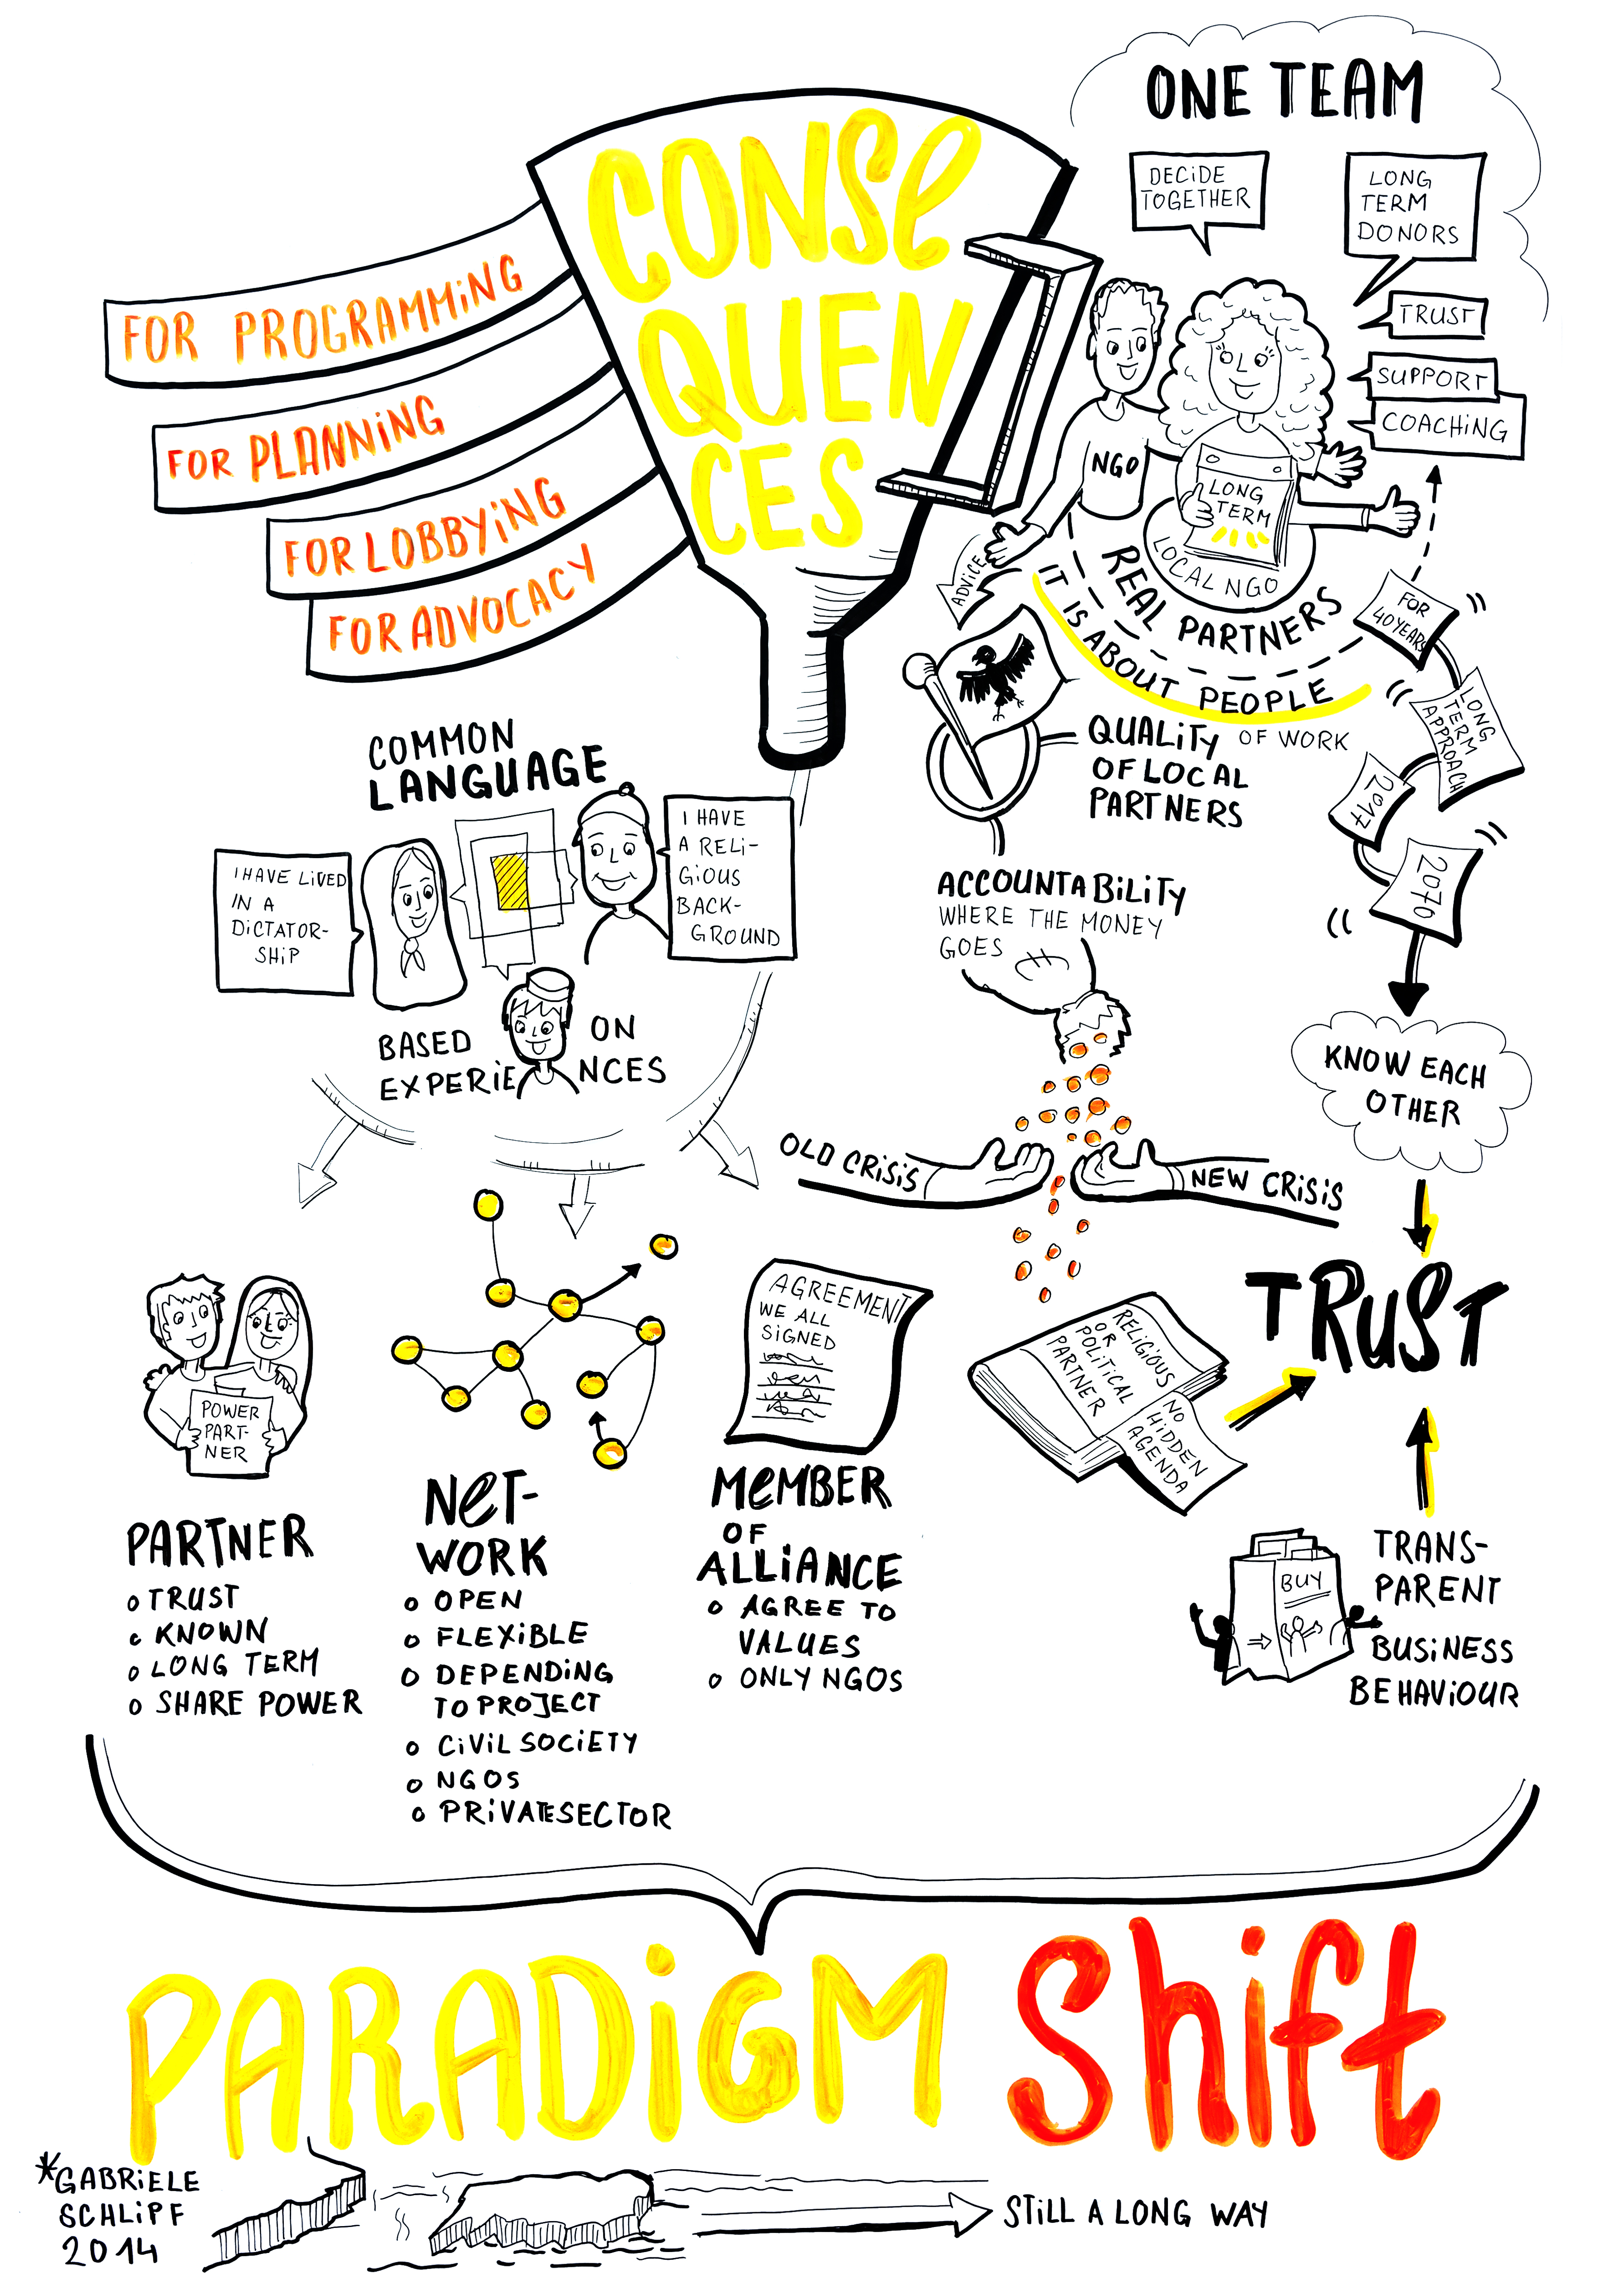 CONSE
QUEN
CES
FOR PROGRAMMING
FOR PLANNING
FOR LOBBYING
FOR ADVOCACY
ONE TEAM
DECIDE
TOGETHER
LONG
TERM
DONORS
TRUST
SUPPORT
COACHING
NGO
LONG
TERM
LOCAL NGO
REAL PARTNERS
IT IS ABOUT PEOPLE
ADVICE
FOR
40 YEARS
LONG
TERM
APPROACH
2017
2070
KNOW EACH
OTHER
QUALITY OF WORK
OF LOCAL
PARTNERS
ACCOUNTABILITY
WHERE THE MONEY
GOES
OLD CRISIS
NEW CRISIS
COMMON
LANGUAGE
I HAVE LIVED
IN A
DICTATOR-
SHIP
I HAVE
A RELI-
GIOUS
BACK-
GROUND
BASED ON
EXPERIENCES
POWER
PART-
NER
PARTNER
o TRUST
o KNOWN
o LONG TERM
o SHARE POWER
NET-
WORK
o OPEN
o FLEXIBLE
o DEPENDING
TO PROJECT
o CIVIL SOCIETY
o NGOS
o PRIVATESECTOR
AGREEMENT
WE ALL
SIGNED
MEMBER
OF
ALLIANCE
o AGREE TO
VALUES
o ONLY NGOS
RELIGIOUS
OR
POLITICAL
PARTNER
NO
HIDDEN
AGENDA
TRUST
BUY
TRANS-
PARENT
BUSINESS
BEHAVIOUR
PARADIGM Shift
*GABRIELE
SCHLIPF
2014
STILL A LONG WAY